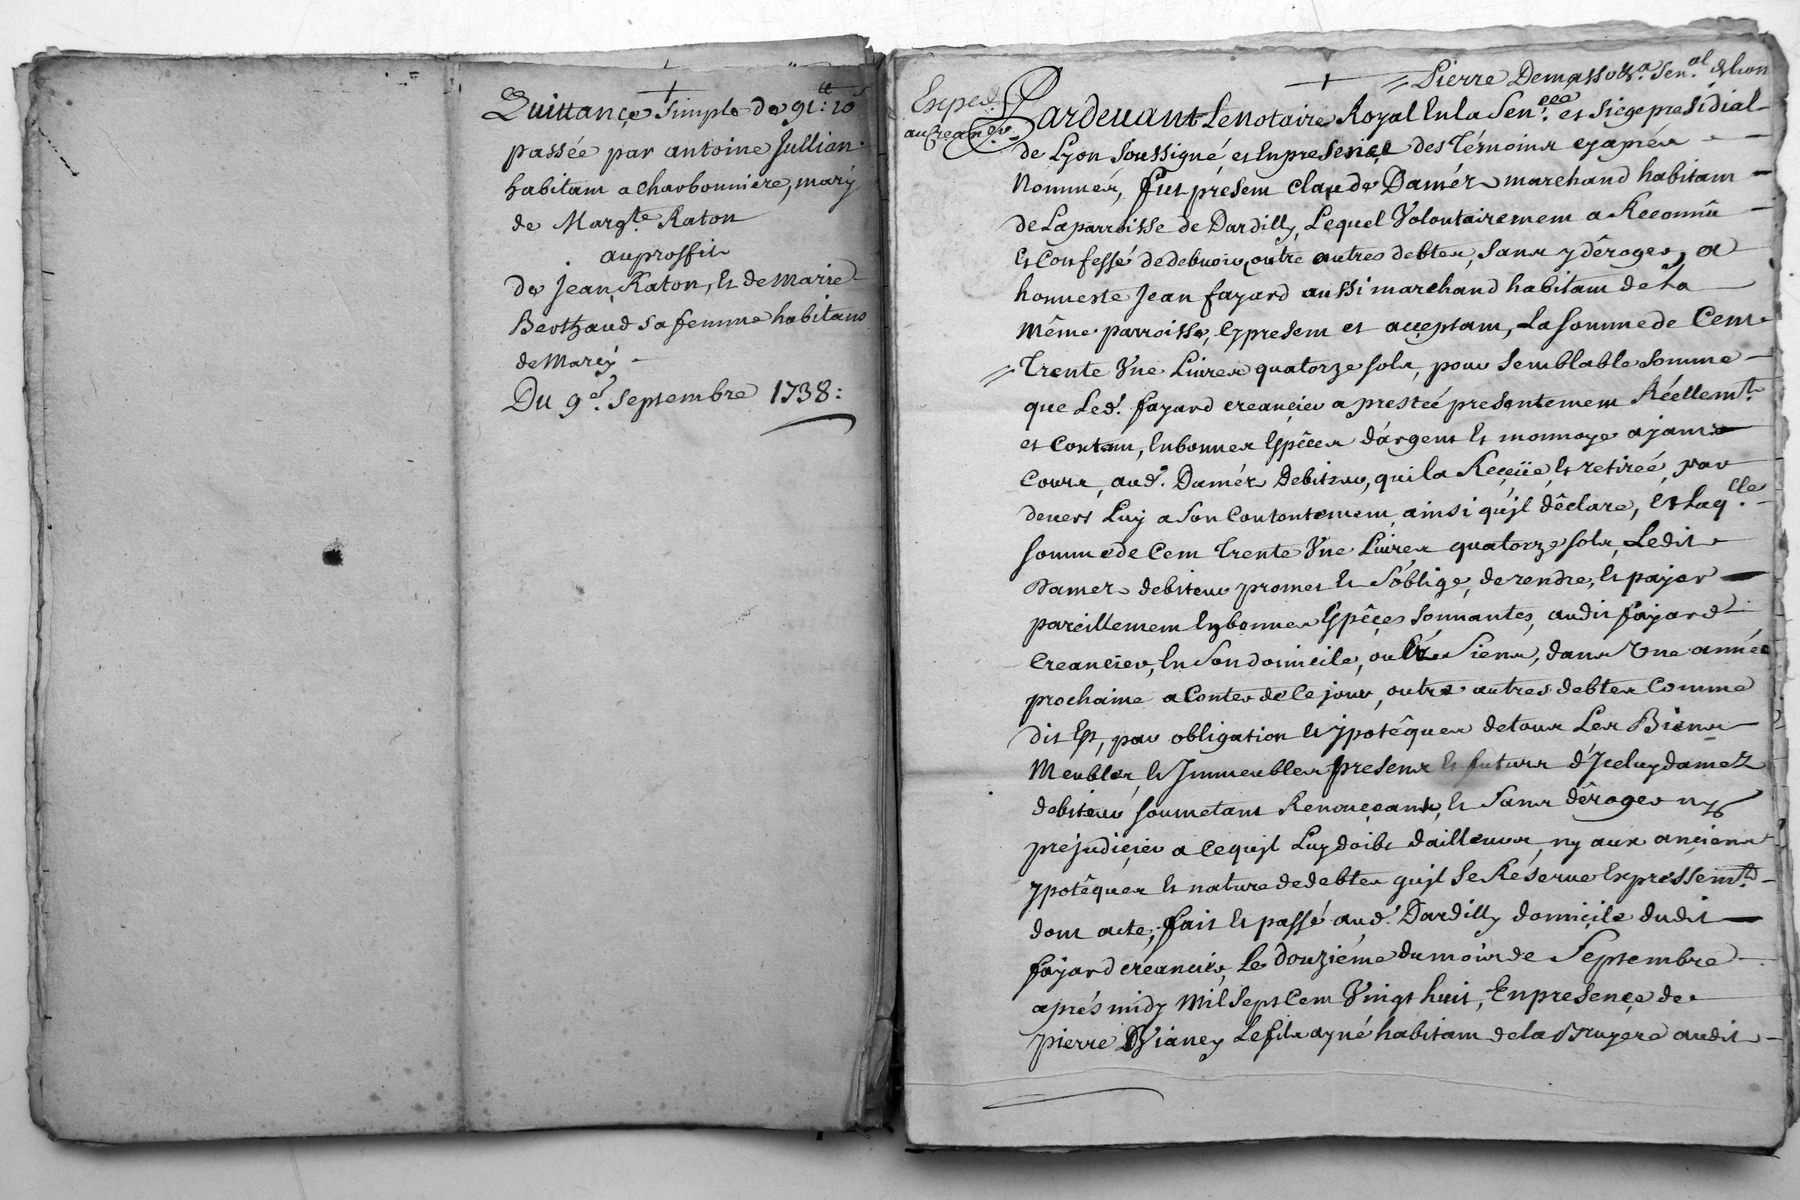 Quittançe simple de 91ˡˡ: 10ˢ
passée par antoine Jullian
habitant a charbonniere, mary
de Margᵗᵉ. Raton
auproffit
de Jean Raton, et de Marie
Berthaud sa femme habitans
de Marcÿ
Du 9ᵉ. Septembre 1738:
Pierre Demasso &ᵃ Senᵃˡ de Lion
Exped.
au creanᵉʳ.
Pardevant Le notaire Royal En la Senᵉᵉᵉ. et siege presidial
de Lyon soussigné et En presençe des Témoins cyaprés
Nommés, fut présent claude Damér marchand habitant
de La parroisse de Dardilly, Lequel Volontairement a Reconnû
Et Confessé de debvoir, outre autres debtes, sans y dêroger, a
honneste Jean fayard aussi marchand habitant de La
même parroisse, cy present et acçeptant, La somme de Cent
trente Une Livres quatorze sols, pour semblable somme
que Led. fayard creançier a prestéé presentement Réellemᵗ.
et Contant, En bonnes Espêces d'argent Et monnoye ajant
Cours, aud. Damér debiteur, qui la Reçeüe, et retireé, par
devers Luÿ a son Contontement, ainsi qu'jl dêclare, Et Laqˡˡᵉ.
somme de Cent trente Une Livres quatorze sols, Ledit
Damer debiteur promet Et s'oblige, de rendre, et payer
pareillement En bonnes Espêçes sonnantes, audit fayard
Creancier, En son domicile, ou Siens, dans Une année
prochaine a Conter de Ce jour, outre autres debtes Comme
dit Est, par obligation Et ypotêques de tous Les Biens
Meubles, et Immeubles presens et futurs d'Jceluy damez
debiteur soumetant Renonçeant, et Sans dêroger ny
préjudiçier a Cequjl Luy doibt dailleurs, ny aux ançiens
ypotêques Et nature de debtes qujl se Réserve Expressemᵗ.
dont acte, fait Et passé aud. Dardilly domiçile dudit
fayard creancier, Le Douziéme du mois de Septembre
aprés midy Mil Sept Cent Vingt huit, En presençe de
pierre Vianey Le fils ayné habitant de la Bruyere audit